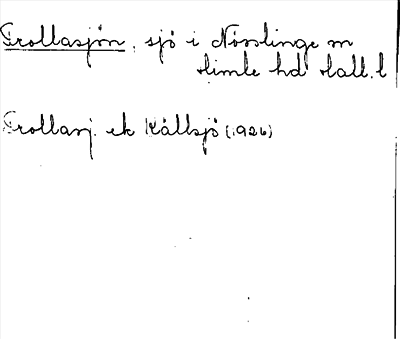 Trollasjön, sjö i Nösslinge sn
Himle hd Hall. l
Trollasj. ek Källsjö (1926)